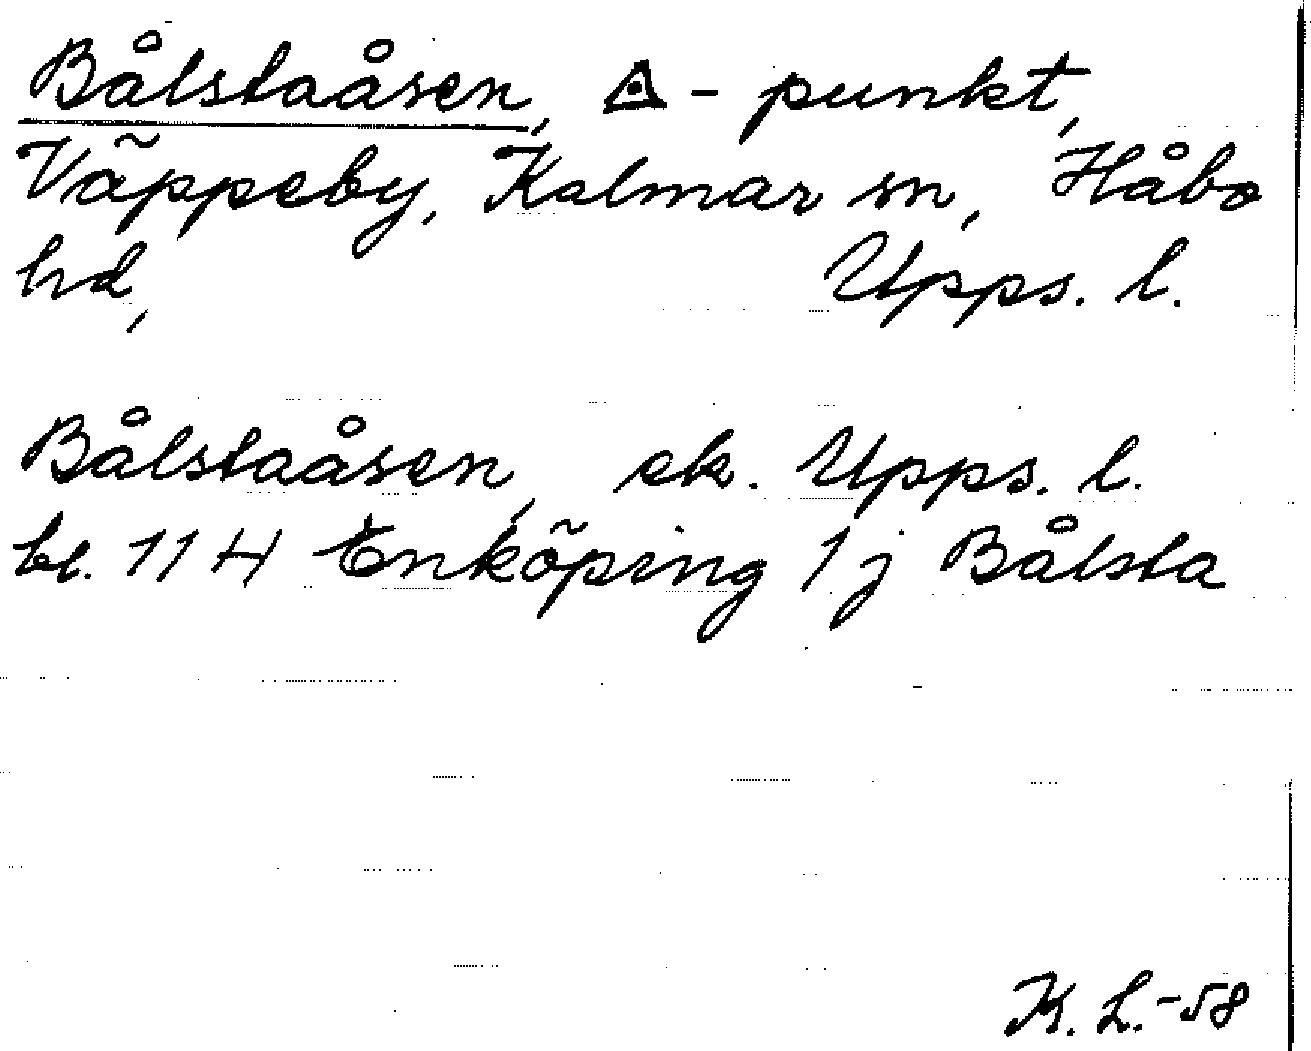 Bålstaåsen, △-punkt,
Väppeby, Kalmar sn, Håbo
hd, Upps. l.
Bålstaåsen, ek. Upps. l.
bl. 11 H Enköping 1 j Bålsta
K. L. -58